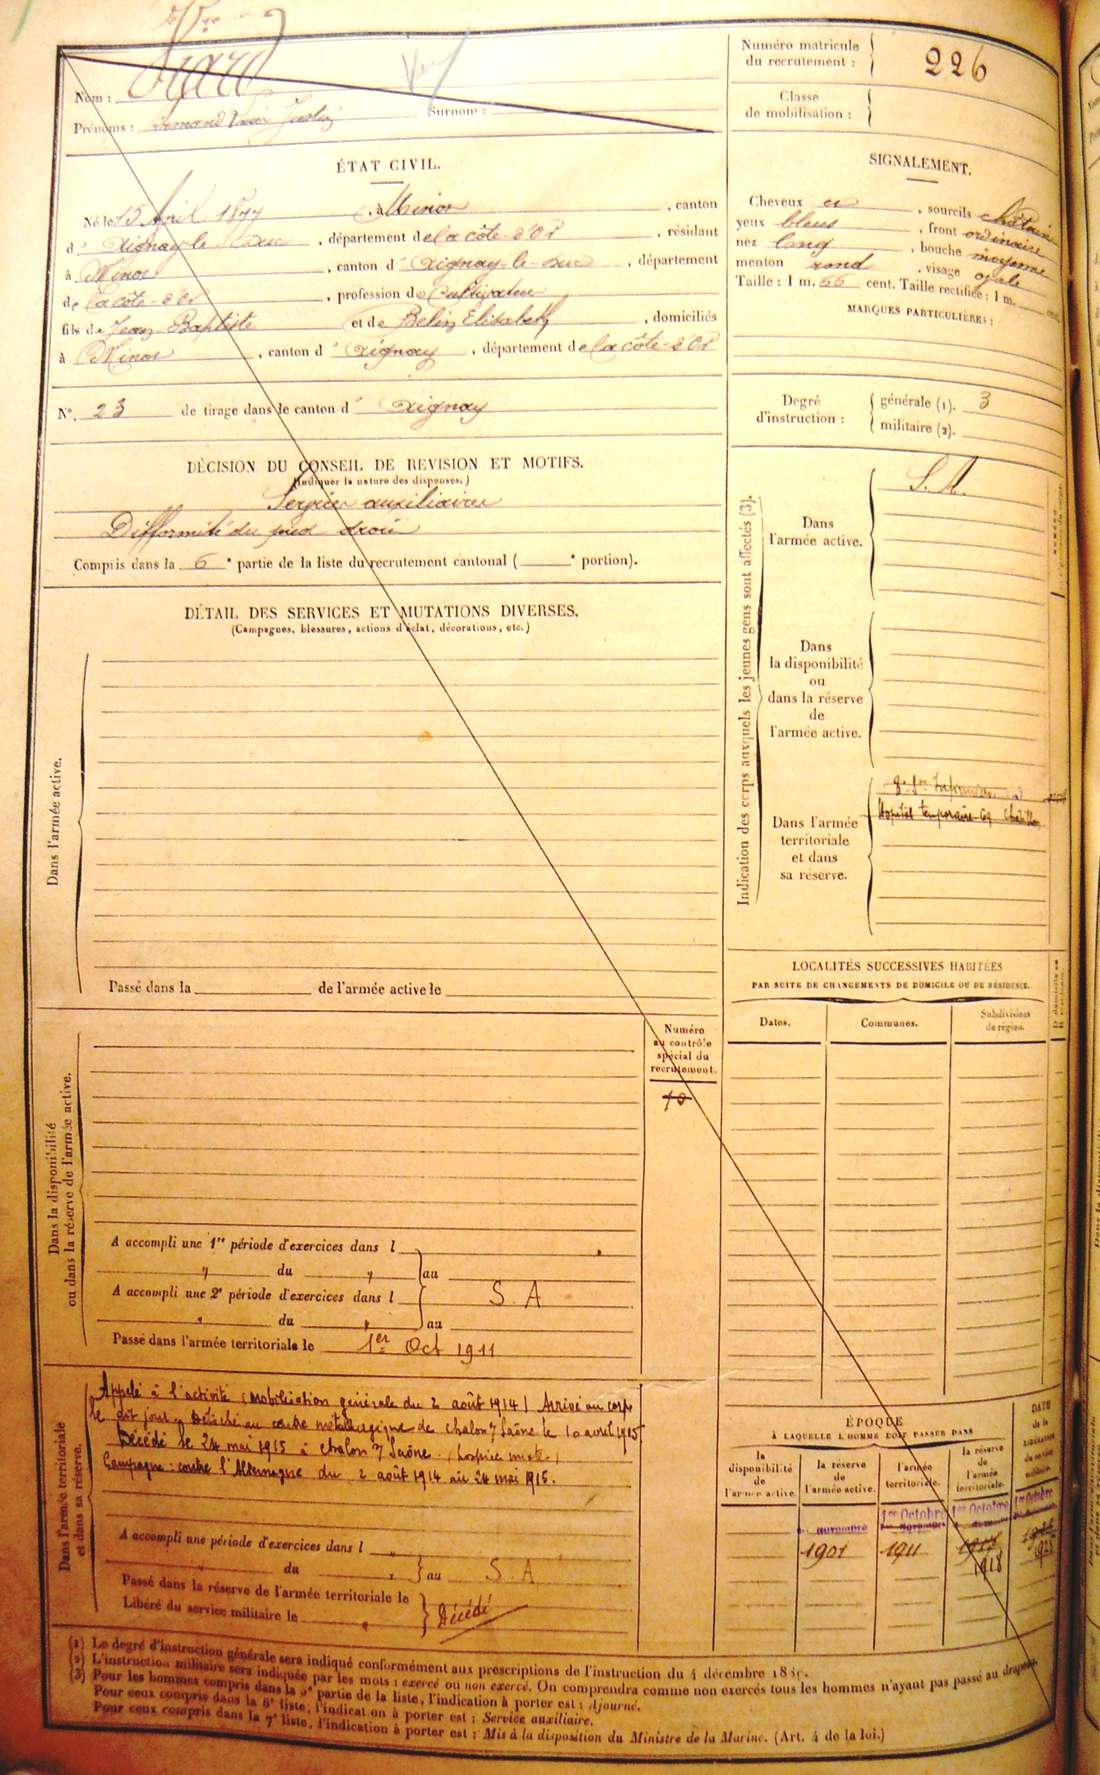 Viard
Nom :
Prénoms : Armand Justin
Surnom :
Numéro matricule
du recrutement : 226
Classe
de mobilisation :
ÉTAT CIVIL.
Né le 15 Avril 1877, à Minot, canton
d' Aignay-le-Duc, département de la côte-d'Or, résidant
à Minot, canton d' Aignay-le-Duc, département
de la côte-d'Or, profession de Cultivateur
fils de Jean Baptiste et de Belin Elisabeth, domiciliés
à Minot, canton d' Aignay, département de la côte-d'Or
N° 23 de tirage dans le canton d' Aignay
SIGNALEMENT.
Cheveux et, sourcils châtains
yeux bleus, front ordinaire
nez long, bouche moyenne
menton rond, visage ovale
Taille : 1 m. 66 cent. Taille rectifiée : 1 m. cent.
MARQUES PARTICULIÈRES :
Degré
d'instruction :
générale (1). 3
militaire (2).
DÉCISION DU CONSEIL DE REVISION ET MOTIFS.
(Indiquer la nature des dispenses.)
Services auxiliaires
Difformité du pied droit
Compris dans la 6e partie de la liste du recrutement cantonal ( e portion).
DÉTAIL DES SERVICES ET MUTATIONS DIVERSES.
(Campagnes, blessures, actions d'éclat, décorations, etc.)
Dans l'armée active.
Passé dans la de l'armée active le
Indication des corps auxquels les jeunes gens sont affectés (3).
Dans
l'armée active.
S. A.
Dans
la disponibilité
ou
dans la réserve
de
l'armée active.
Dans l'armée
territoriale
et dans
sa réserve.
Hopital temporaire
LOCALITÉS SUCCESSIVES HABITÉES
PAR SUITE DE CHANGEMENTS DE DOMICILE OU DE RÉSIDENCE.
Dates.
Communes.
Subdivisions
de région.
Dans la disponibilité
ou dans la réserve de l'armée active.
Numéro
au contrôle
spécial du
recrutement.
A accompli une 1re période d'exercices dans l
" du " au
A accompli une 2e période d'exercices dans l
S. A
" du " au
Passé dans l'armée territoriale le 1er Oct 1911
Dans l'armée territoriale
et dans sa réserve.
Appelé à l'activité (mobilisation générale du 2 août 1914) Arrivé au corps
le dit jour. Détaché au centre métallurgique de Chalon s/ Saône le 10 avril 1915
Décédé le 24 mai 1915 à Chalon s/ Saône (hospice mixte)
Campagne : contre l'Allemagne du 2 août 1914 au 24 mai 1915.
A accompli une période d'exercices dans l "
du " au S. A
Passé dans la réserve de l'armée territoriale le
Libéré du service militaire le "
Décédé
ÉPOQUE
À LAQUELLE L'HOMME DOIT PASSER DANS
la
disponibilité
de
l'armée active.
la réserve
de
l'armée active.
l'armée
territoriale.
la réserve
de
l'armée
territoriale.
DATE
de la
LIBÉRATION
du service
militaire.
novembre
1901
1er Octobre
1911
1er Octobre
1917
1918
1er Octobre
(1) Le degré d'instruction générale sera indiqué conformément aux prescriptions de l'instruction du 4 décembre
(2) L'instruction militaire sera indiquée par les mots : exercé ou non exercé. On comprendra comme non exercés tous les hommes n'ayant pas passé au drapeau.
(3) Pour les hommes compris dans la 5e partie de la liste, l'indication à porter est : Ajourné.
Pour ceux compris dans la 6e liste, l'indication à porter est : Service auxiliaire.
Pour ceux compris dans la 7e liste, l'indication à porter est : Mis à la disposition du Ministre de la Marine. (Art. 4 de la loi.)